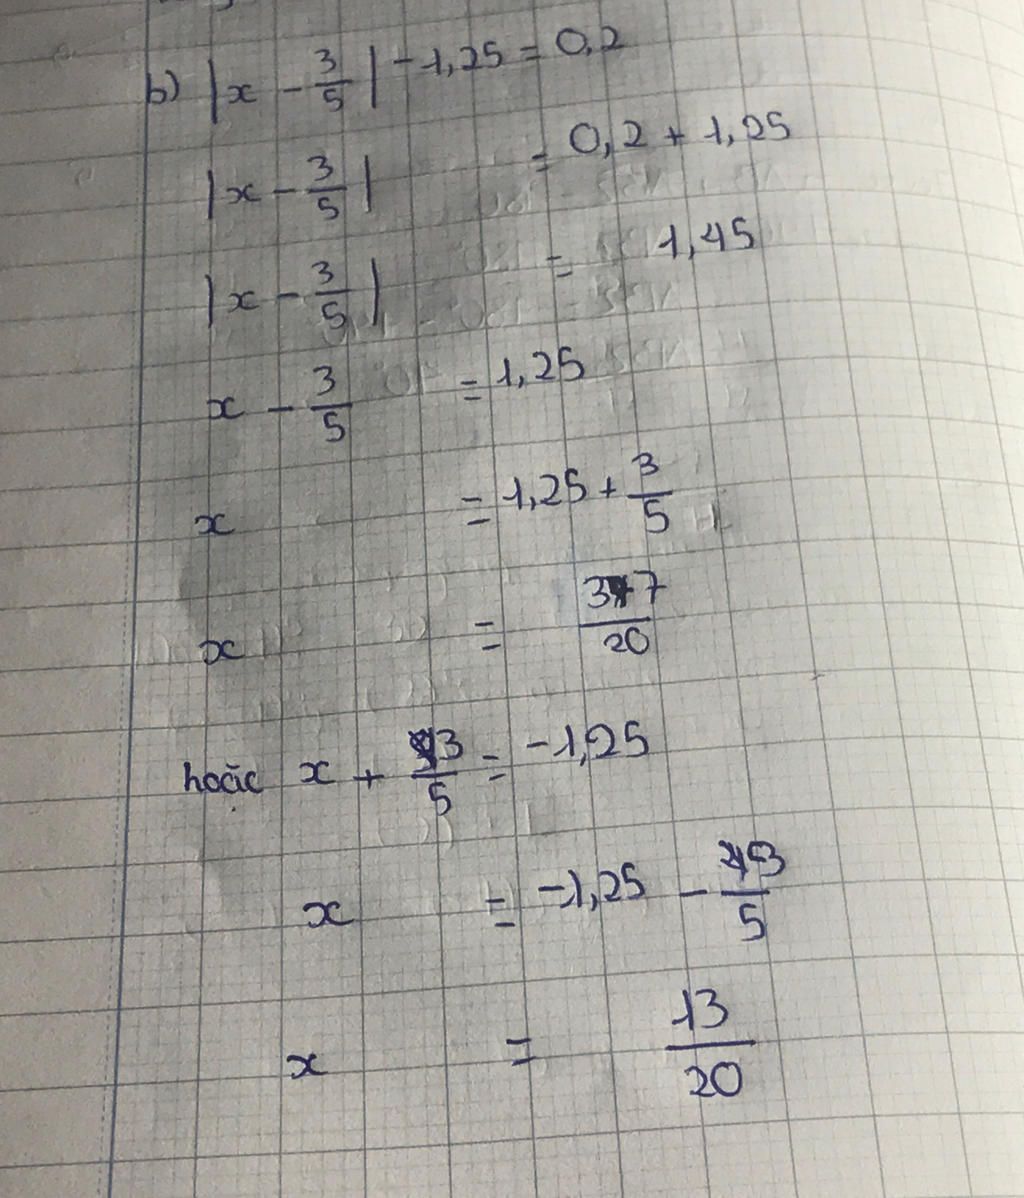 b) |x - 3/5| - 1,25 = 0,2
|x - 3/5| = 0,2 + 1,25
|x - 3/5| = 1,45
x - 3/5 = 1,25
x = 1,25 + 3/5
x = 37/20
hoặc x + 3/5 = -1,25
x = -1,25 - 3/5
x = 13/20